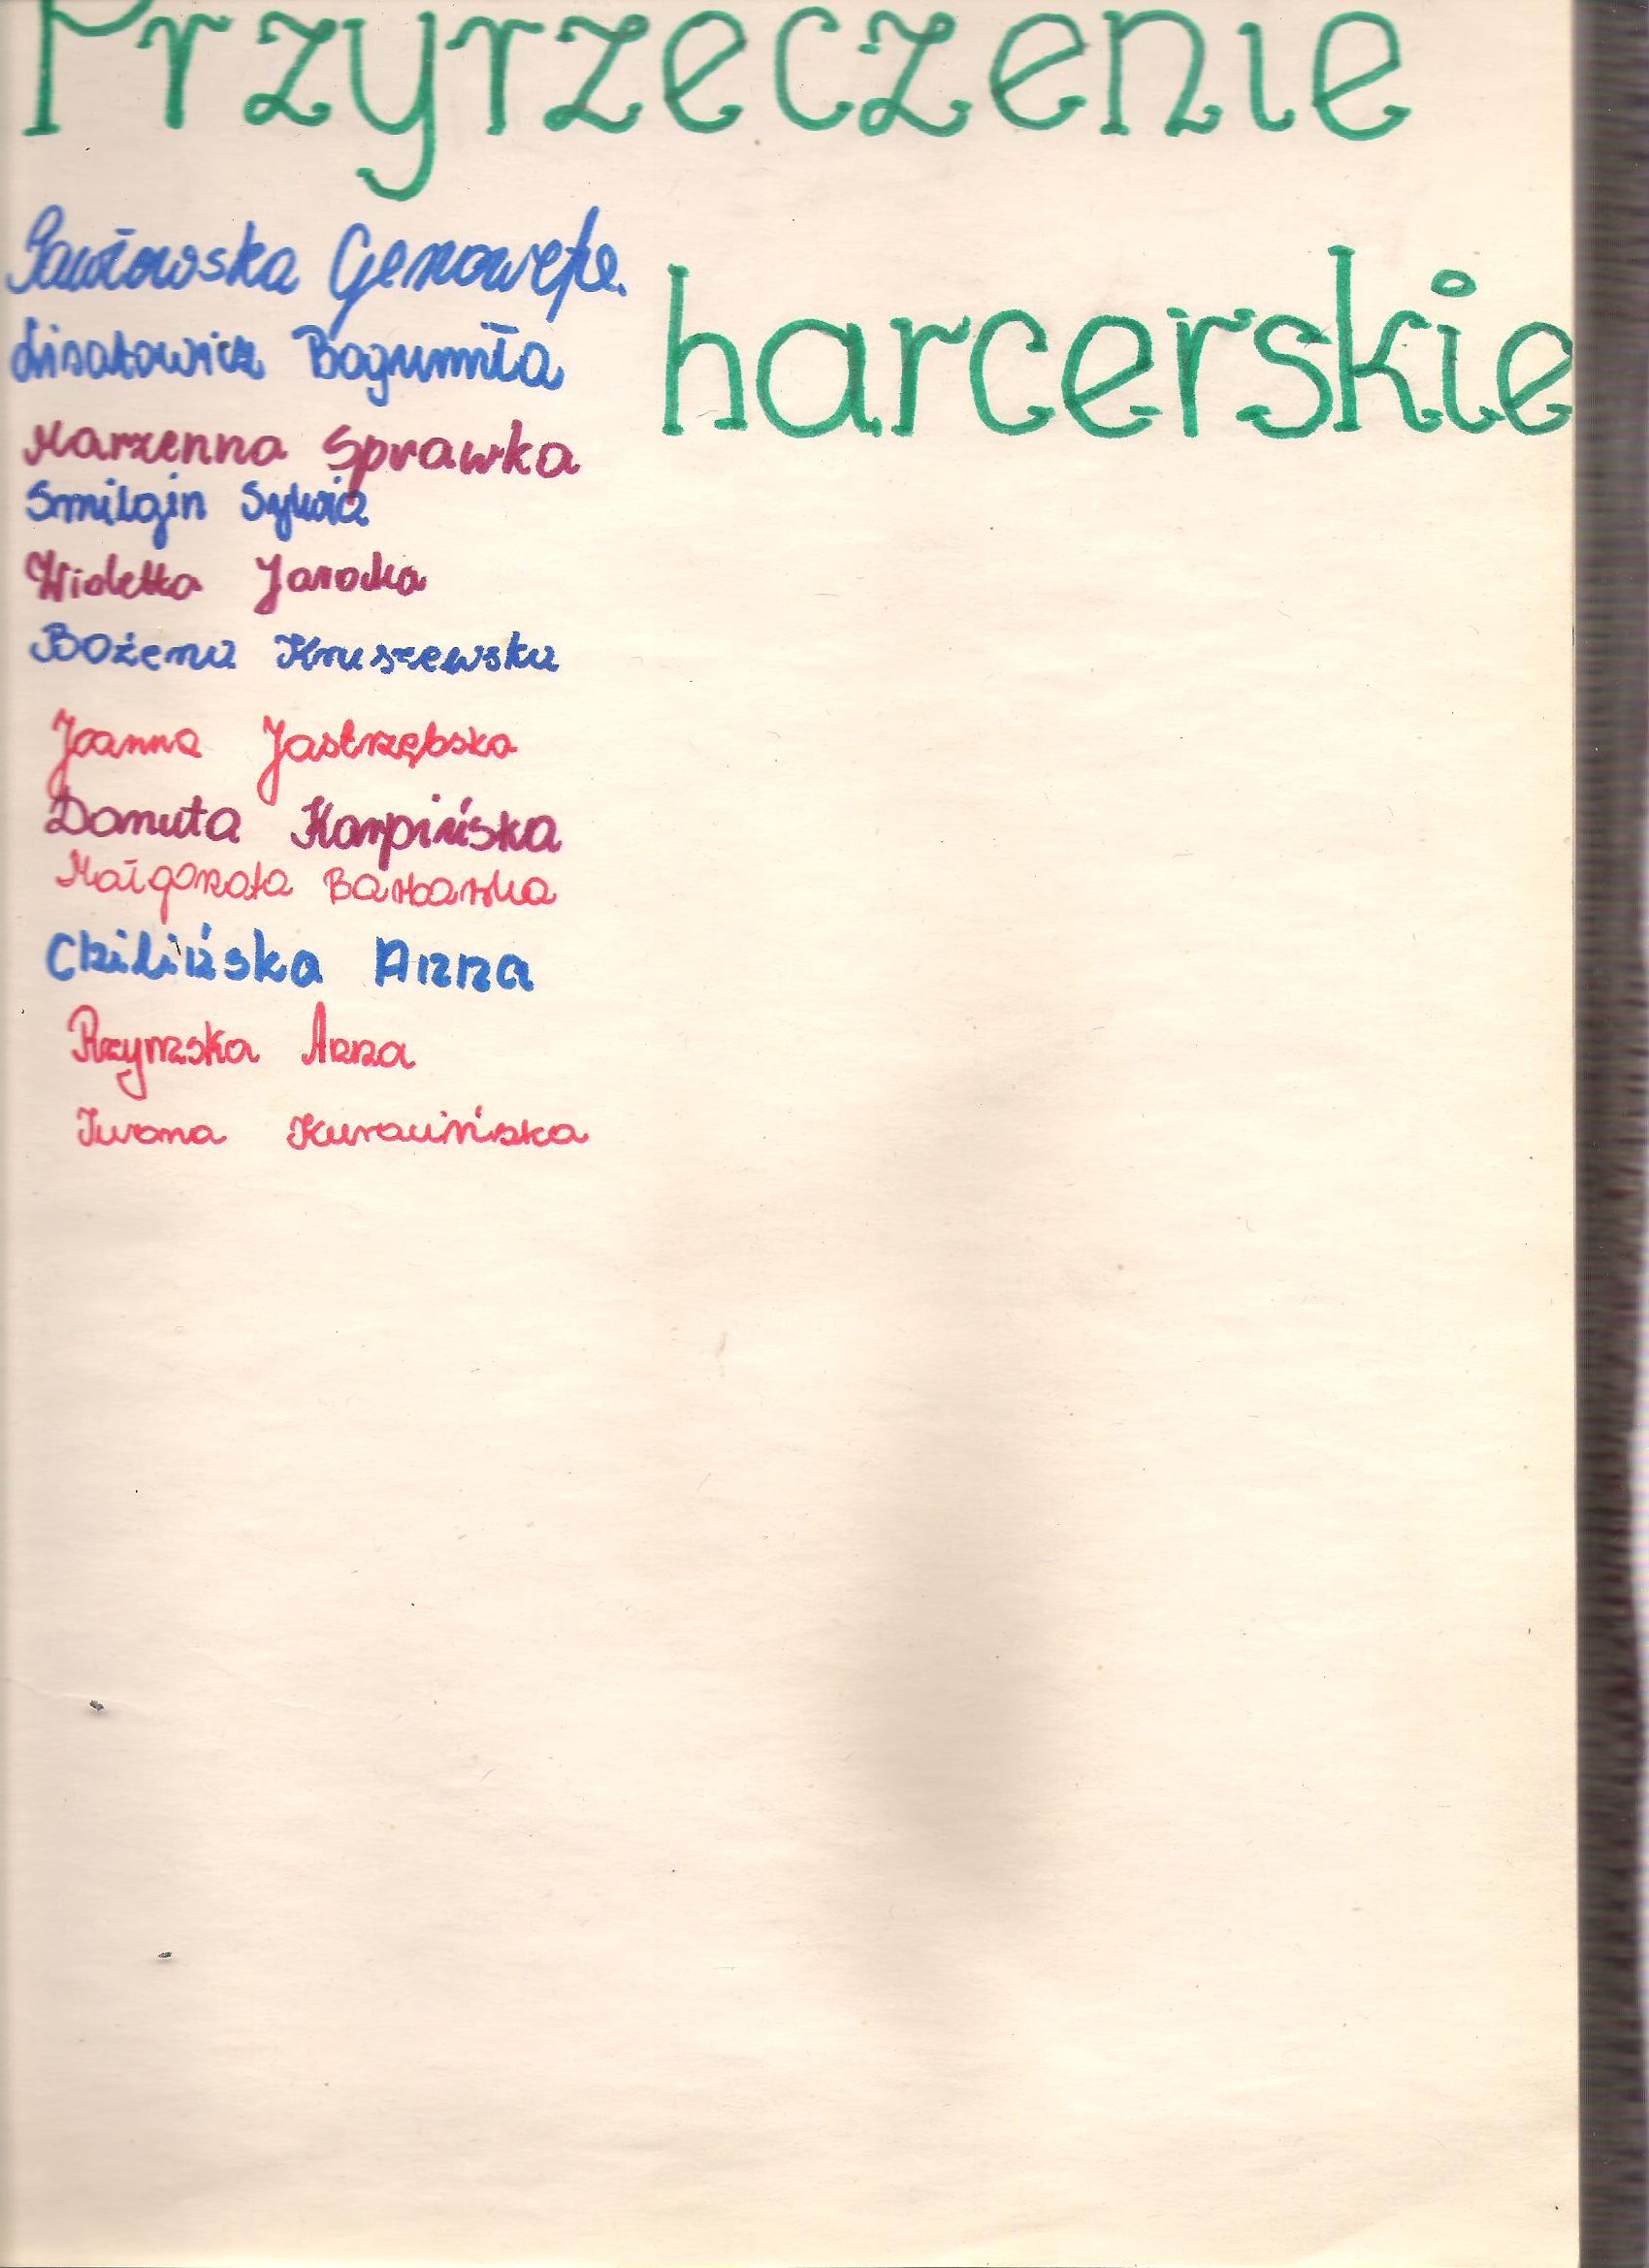 Przyrzeczenie
harcerskie
Pawłowska Genowefa.
Lisatowicz Bogumiła
Marzenna Sprawka
Smilgin Sylwia
Wioletta Jarocka
Bożena Kruszewska
Joanna Jastrzębska
Danuta Karpińska
Małgorzata Barbarska
Czilińska Anna
Rzymska Anna
Iwona Kuracińska